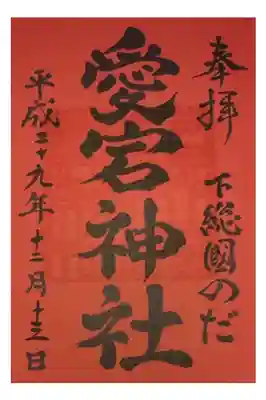 奉拝 下総國のだ
愛宕神社
平成二十九年十二月十三日